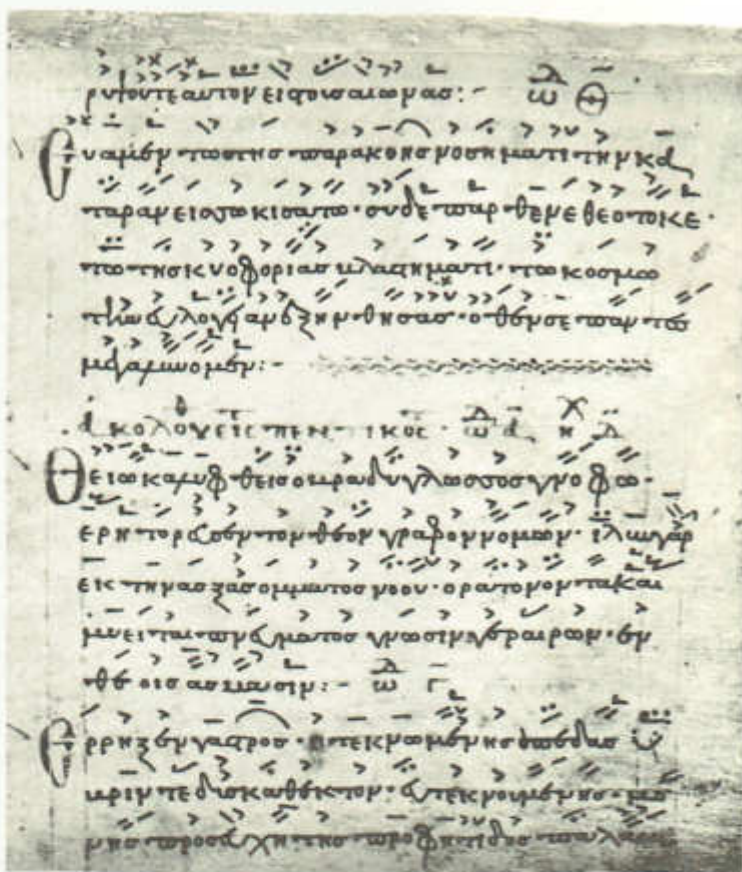 ρυψουτε αυτον εις τους αιωνας:- ωδ Θ
Ευα μεν τω της παρακοης νοσηματι την κα
ταραν εισωκισατω· συ δε παρθενε θεοτοκε·
τω της κυοφοριας βλαστηματι· τω κοσμω
την ευλογιαν εξηνθησας· οθεν σε παντες
μεγαλυνομεν:-
εις πεντικος· ωδ α ηχ δ
Θειω καλυφθεις ο βραδυγλωσσος γνοφω·
ερητορευσεν τον θεογραφον νομον· ιλυν γαρ
εκτηναξας ομματος νοου· ορα τον οντα και
μυειται πνευματος γνωσιν γεραιρων· εν
θεοις ασμασιν:- ωδ Γ
Ερρηξεν γαστρος ητεκνωμενης πεδας υ
βριν τε δυσκαθεκτον· ευτεκνουμενης· μο
νη προσευχη της προφητιδος παλαι